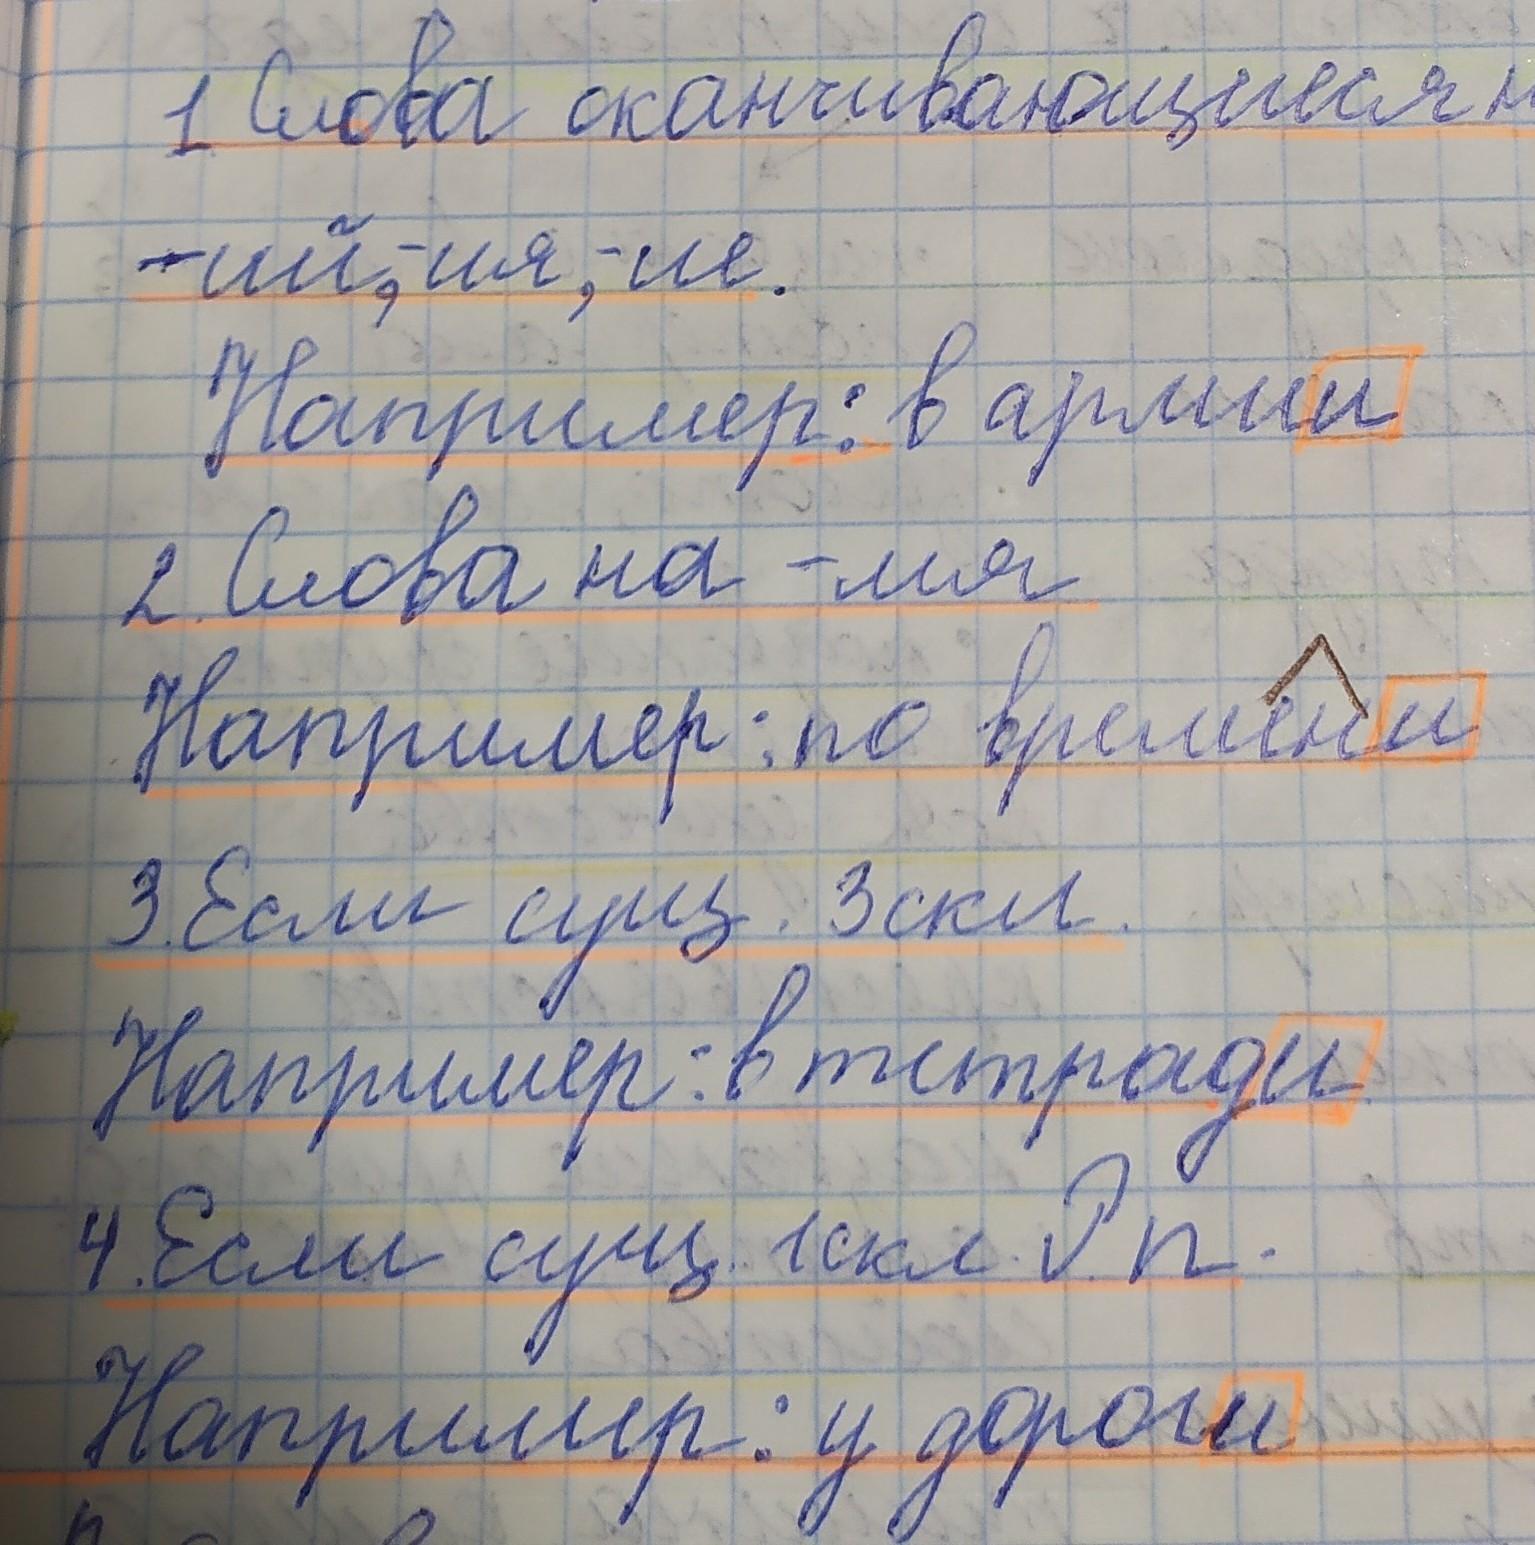 1 Слова оканчивающиеся н
-ий, -ия, -ие.
Например: в армии
2. Слова на -мя
Например: по времени
3. Если сущ. 3 скл.
Например: в тетради
4. Если сущ. 1 скл. Р. п.
Например: у дороги